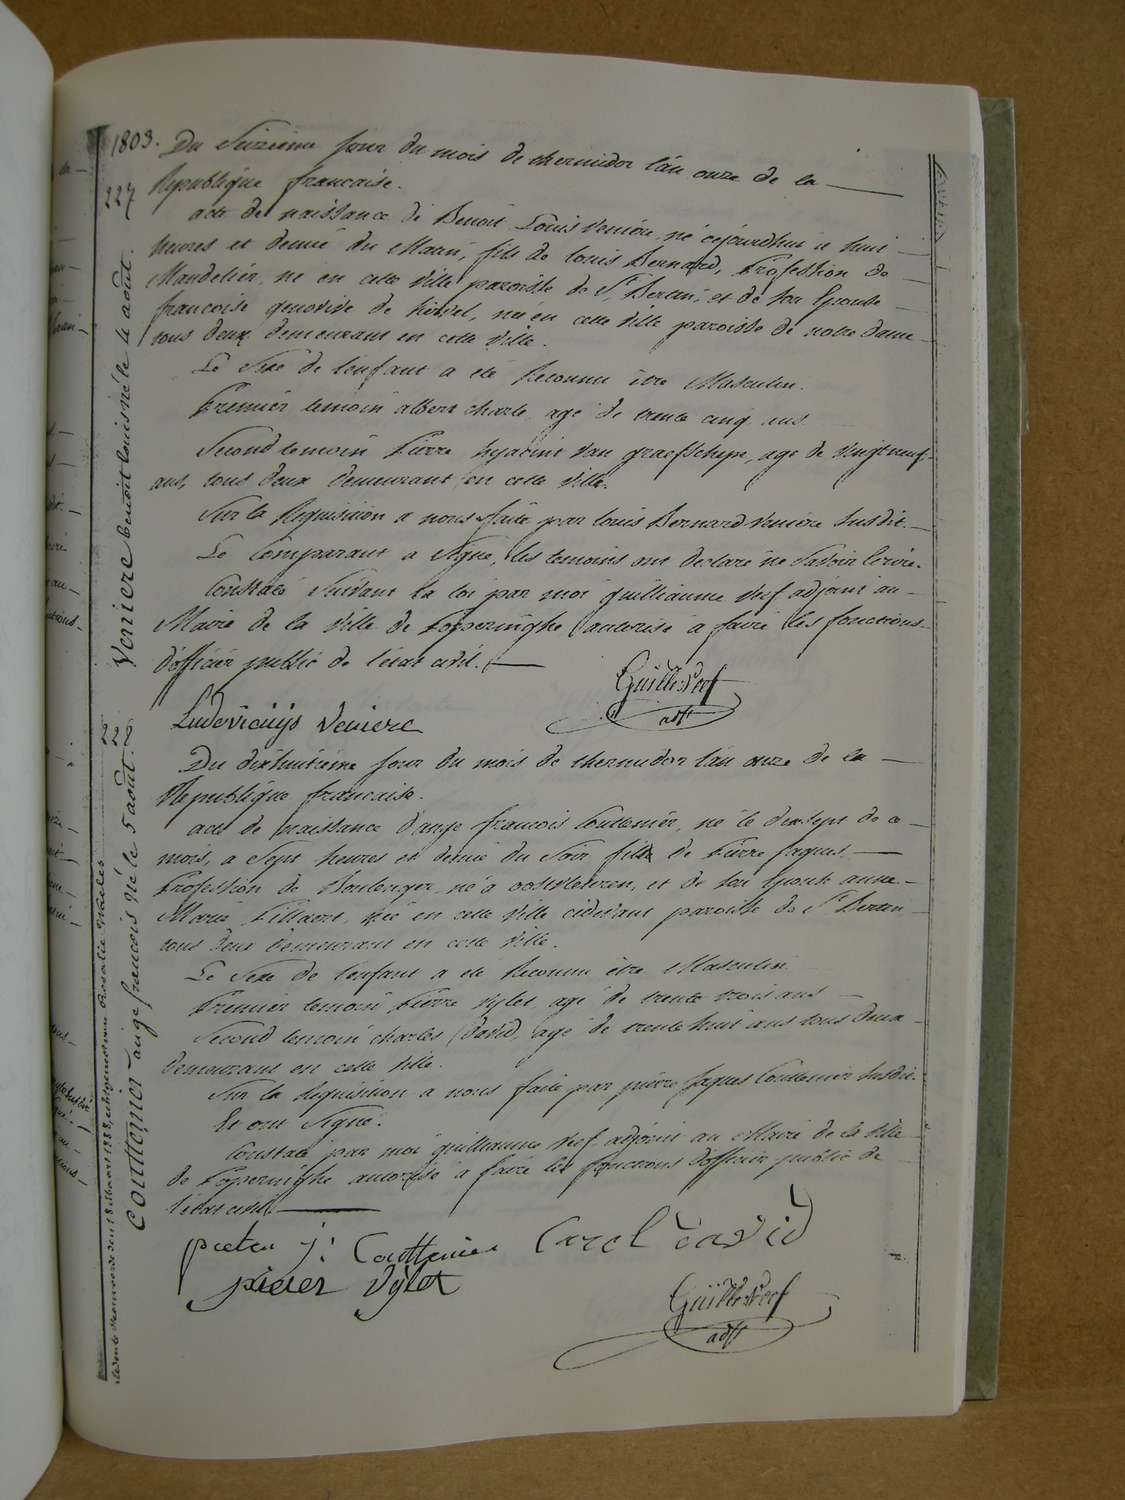 1803.
227
Du Seizième jour du mois de thermidor l'an onze de la
Republique francaise.
acte de naissance de Benoit Louis Veniere, né cejourdhui a huit
heures et demie du Matin, fils de louis Bernard, Profession de
Mandelier, né en cette ville paroisse de St Bertin, et de son Epouse
francoise genoviève de, née en cette ville paroisse de notre dame
tous deux demeurant en cette ville.
Le Sexe de l'enfant a été Reconnu être Masculin.
Premier temoin albert charle, agé de trente cinq ans
Second temoin Pierre hyacint Van graefschepe, age de vingt neuf
ans, tous deux demeurant en cette ville.
Sur la Requisition a nous faite par louis Bernard Veniere Susdit
Le Comparant a Signé, les temoins ont declaré ne Savoir Ecrire.
Constaté Suivant la loi par moi guilliaume Vief adjoint au
Maire de la Ville de Poperinghe autorisé a faire les fonctions
d'officier public de l'état civil.
Guille Vief
adjt
Ludovicuijs Veniere
Veniere benoit louis né le 4 août.
228
Du dixhuitieme jour du mois de thermidor l'an onze de la
Republique francaise.
acte de naissance d'ange francois Couttenier, né le dixsept de ce
mois, a Sept heures et demie du Soir, fils de Pierre Jaques
Profession de Boulenger, né a oostvleteren, et de son Epouse anne
Marie Pillaert, née en cette ville cidevant paroisse de St Bertin
tous deux demeurant en cette ville.
Le Sexe de l'enfant a été Reconnu être Masculin
Premier temoin Pierre Vylet, agé de trente trois ans
Second temoin charles David, agé de trente huit ans tous deux
demeurant en cette ville.
Sur la Requisition a nous faite par pierre Jaques Couttenier Susdit.
Et ont Signé.
Constaté par moi guilliaume Vief adjoint au Maire de la Ville
de Poperinghe autorisé a faire les fonctions d'officier public de
l'état civil.
pieter j: Couttenier Carel david
pieter Vÿlet
Guille Vief
adjt
Couttenier ange francois né le 5 août.